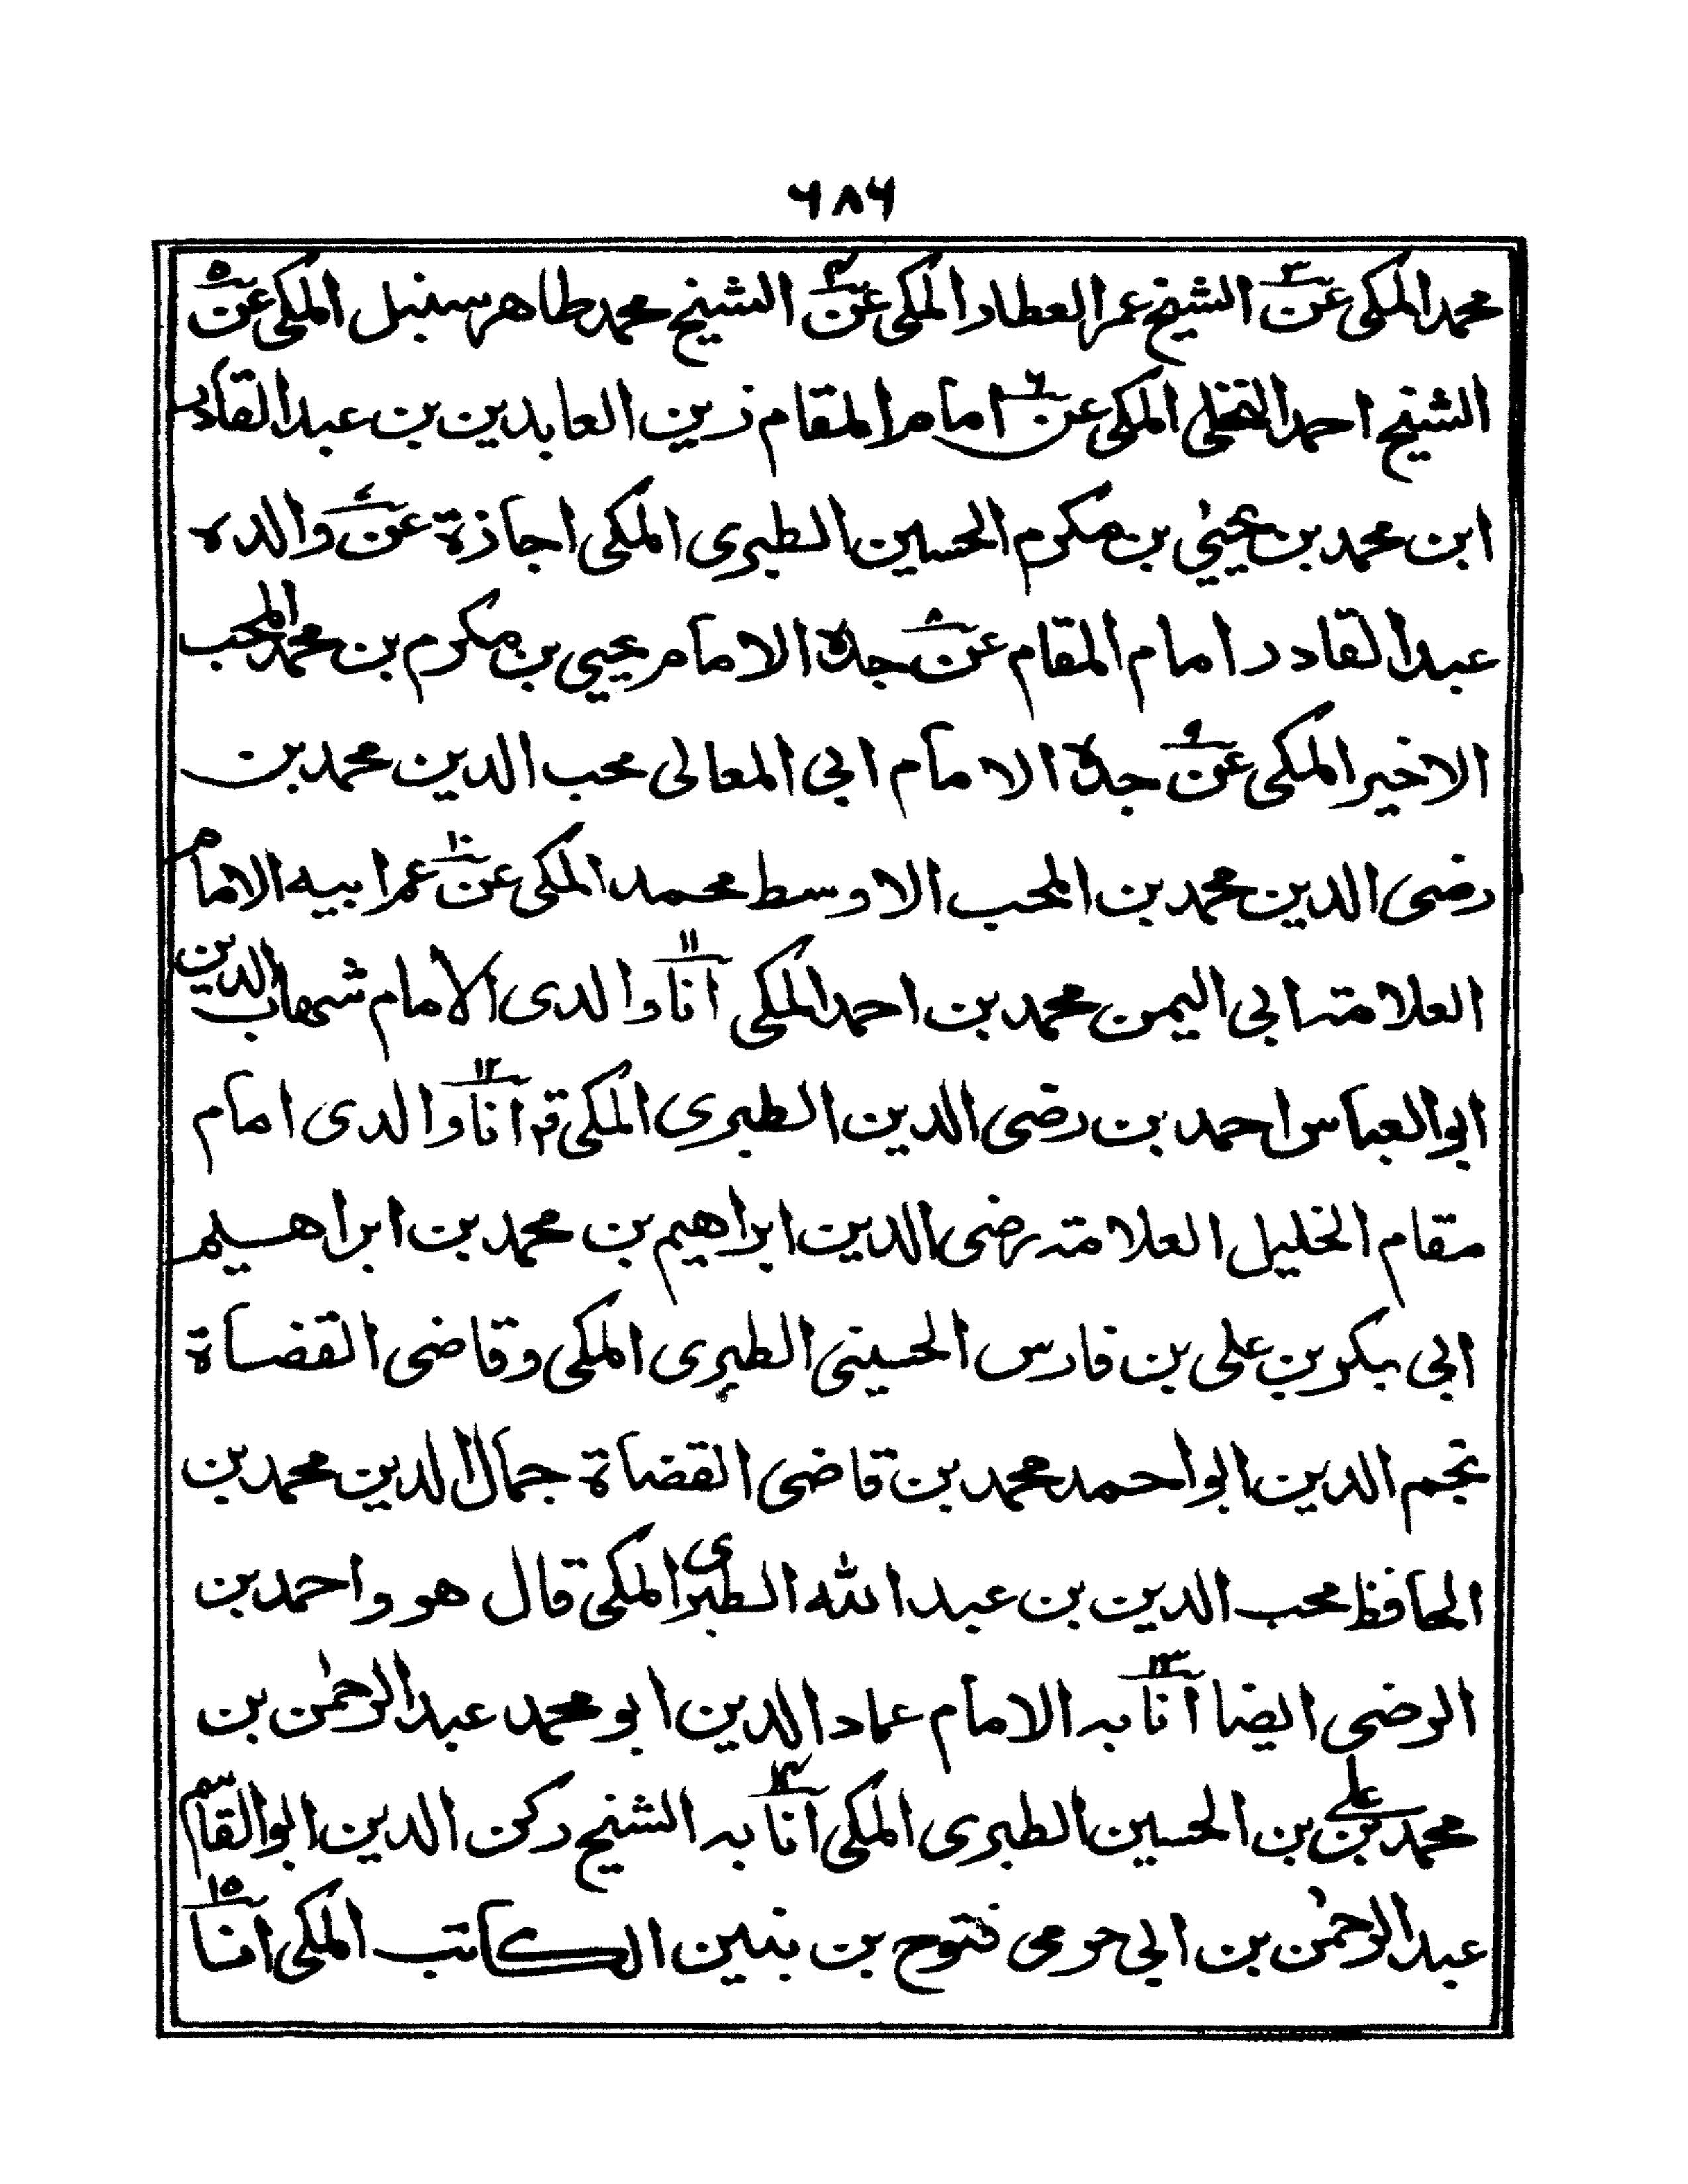 ٦٨٦
محمد المكى عن٣ الشيخ عمر العطار المكى عن٤ الشيخ محمد طاهر سنبل المكى عن٥
الشيخ احمد النخلى المكى عن٦ امام المقام زين العابدين بن عبد القادر
ابن محمد بن يحيٰي بن مكرم الحسين الطبرى المكى اجازة عن٧ والده
عبد القادر امام المقام عن٨ جده الامام يحيي بن مكرم بن محمد المحب
الاخير المكى عن٩ جده الامام ابي المعالى محب الدين محمد بن
رضى الدين محمد بن المحب الاوسط محمد المكى عن١٠ عم ابيه الامام
العلامة ابي اليمن محمد بن احمد المكى انا١١ والدى الامام شهاب الدين
ابو العباس احمد بن رضى الدين الطبرى المكى انا١٢ والدى امام
مقام الخليل العلامة رضى الدين ابراهيم بن محمد بن ابراهيم
ابي بكر بن على بن فارس الحسينى الطبرى المكى وقاضى القضاة
نجم الدين ابو احمد محمد بن قاضى القضاة جمال الدين محمد بن
الحافظ محب الدين بن عبد الله الطبرى المكى قال هو واحمد بن
الرضى ايضا انا١٣ به الامام عماد الدين ابو محمد عبد الرحمٰن بن
محمد بن على بن الحسين الطبرى المكى انا١٤ به الشيخ ركن الدين ابو القاسم
عبد الرحمٰن بن ابي حرمى فتوح بن بنين الكاتب المكى انا١٥